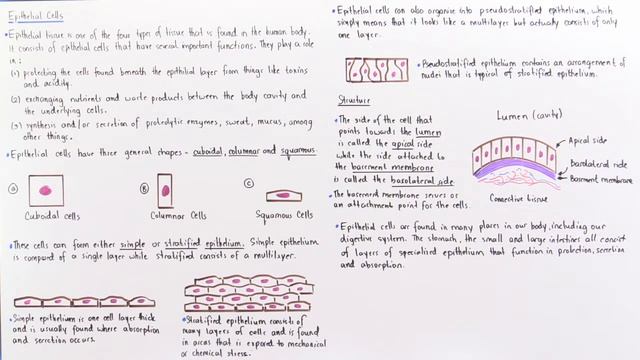 Epithelial Cells
• Epithelial tissue is one of the four types of tissue that is found in the human body.
It consists of epithelial cells that have several important functions. They play a role
in:
(1) protecting the cells found beneath the epithelial layer from things like toxins
and acidity.
(2) exchanging nutrients and waste products between the body cavity and
the underlying cells.
(3) synthesis and/or secretion of proteolytic enzymes, sweat, mucus, among
other things.
• Epithelial cells have three general shapes - cuboidal, columnar and squamous.
A
Cuboidal Cells
B
Columnar Cells
C
Squamous Cells
• These cells can form either simple or stratified epithelium. Simple epithelium
is composed of a single layer while stratified consists of a multilayer.
• Simple epithelium is one cell layer thick
and is usually found where absorption
and secretion occurs.
• Stratified epithelium consists of
many layers of cells and is found
in areas that is exposed to mechanical
or chemical stress.
• Epithelial cells can also organize into pseudostratified epithelium, which
simply means that it looks like a multilayer but actually consists of only
one layer.
• Pseudostratified epithelium contains an arrangement of
nuclei that is typical of stratified epithelium.
Structure
• The side of the cell that
points towards the lumen
is called the apical side
while the side attached to
the basement membrane
is called the basolateral side.
• The basement membrane serves as
an attachment point for the cells.
Lumen (cavity)
Apical side
Basolateral side
Basement membrane
Connective tissue
• Epithelial cells are found in many places in our body, including our
digestive system. The stomach, the small and large intestines all consist
of layers of specialized epithelium that function in protection, secretion
and absorption.